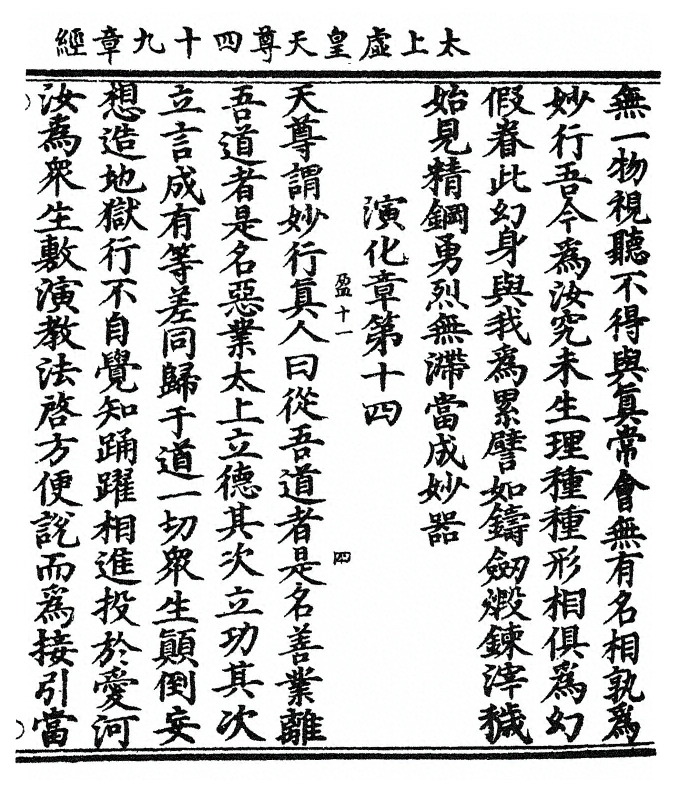 太上虛皇天尊四十九章經
無一物視聽不得與眞常會無有名相孰爲
妙行吾今爲汝究未生理種種形相俱爲幻
假眷此幻身與我爲累譬如鑄劒煅鍊滓穢
始見精鋼勇烈無滯當成妙器
演化章第十四
盈十一
四
天尊謂妙行眞人曰從吾道者是名善業離
吾道者是名惡業太上立德其次立功其次
立言成有等差同歸于道一切衆生顚倒妄
想造地獄行不自覺知踊躍相進投於愛河
汝爲衆生敷演教法啓方便說而爲接引當